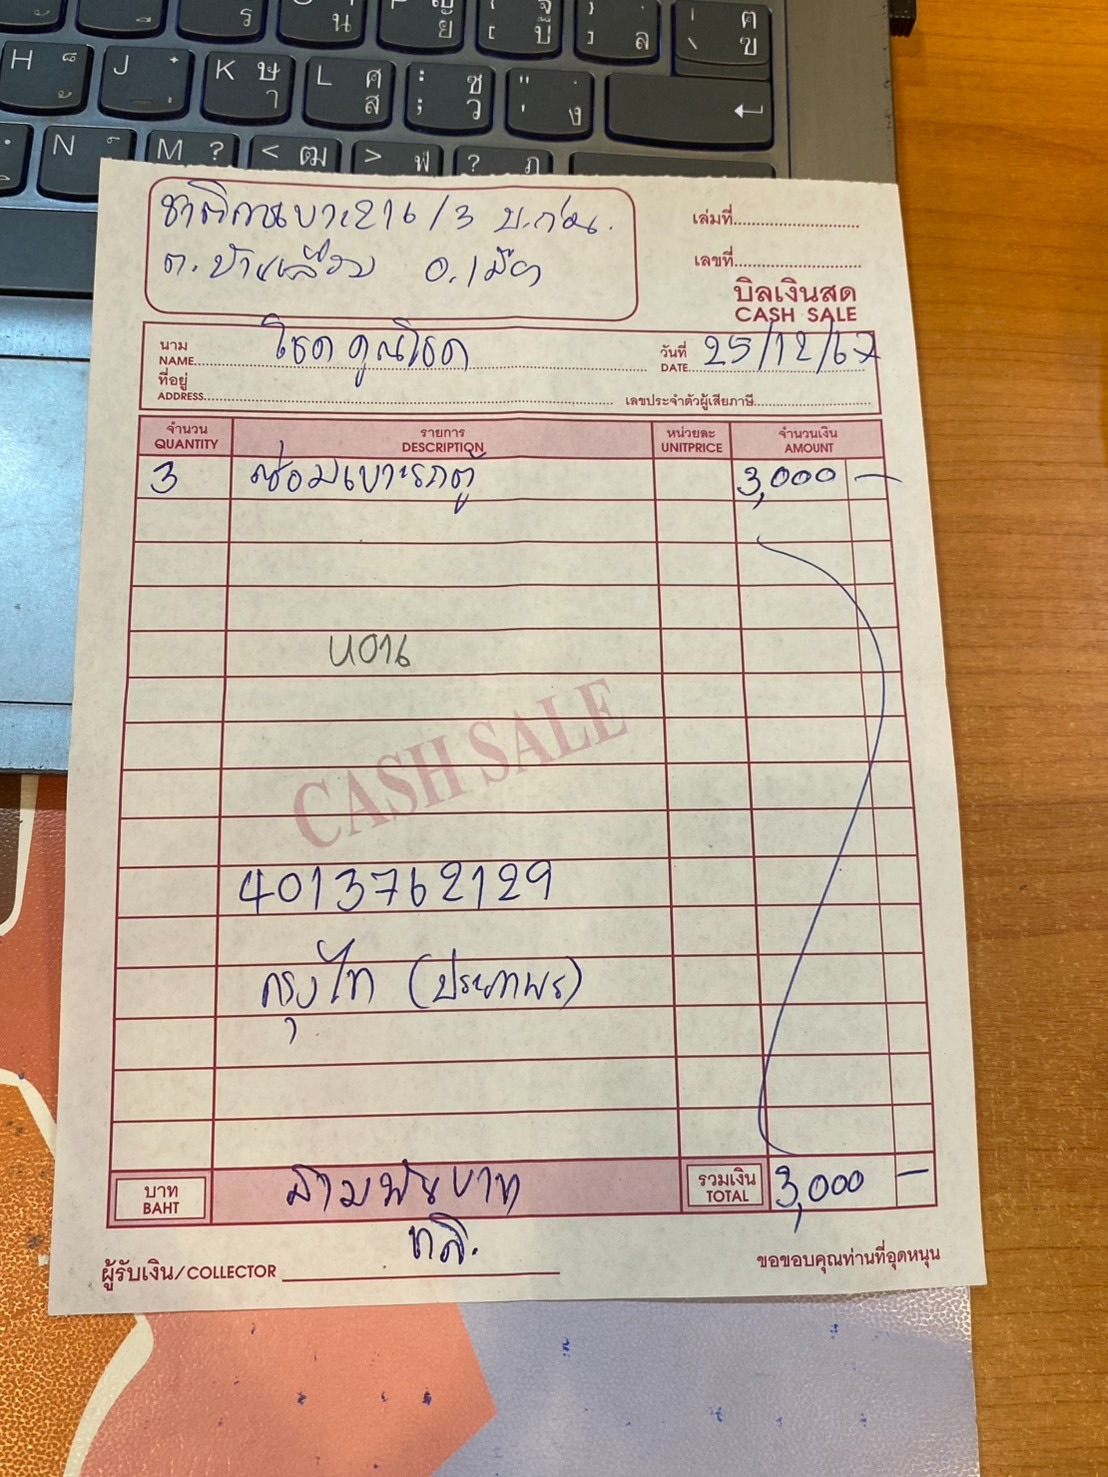 H J K ษ า L ศ ส : ; ซ ว " ' ง
N M ? < ฒ > ฬ ? ฦ
ชาติการเบาะ216/3 บ.กอก.
ต.บ้านเลื่อม อ.เมือง
เล่มที่
เลขที่
บิลเงินสด
CASH SALE
นาม
NAME โชค คูณโชค
วันที่
DATE 25/12/67
ที่อยู่
ADDRESS
เลขประจำตัวผู้เสียภาษี
จำนวน รายการ หน่วยละ จำนวนเงิน
QUANTITY DESCRIPTION UNITPRICE AMOUNT
3 ซ่อมเบาะรถตู้ 3,000 –
CASH SALE
4013762129
กรุงไทย (ประภาพร)
บาท
BAHT
สามพันบาท
รวมเงิน
TOTAL
3,000 –
ชาติ.
ผู้รับเงิน/COLLECTOR
ขอขอบคุณท่านที่อุดหนุน